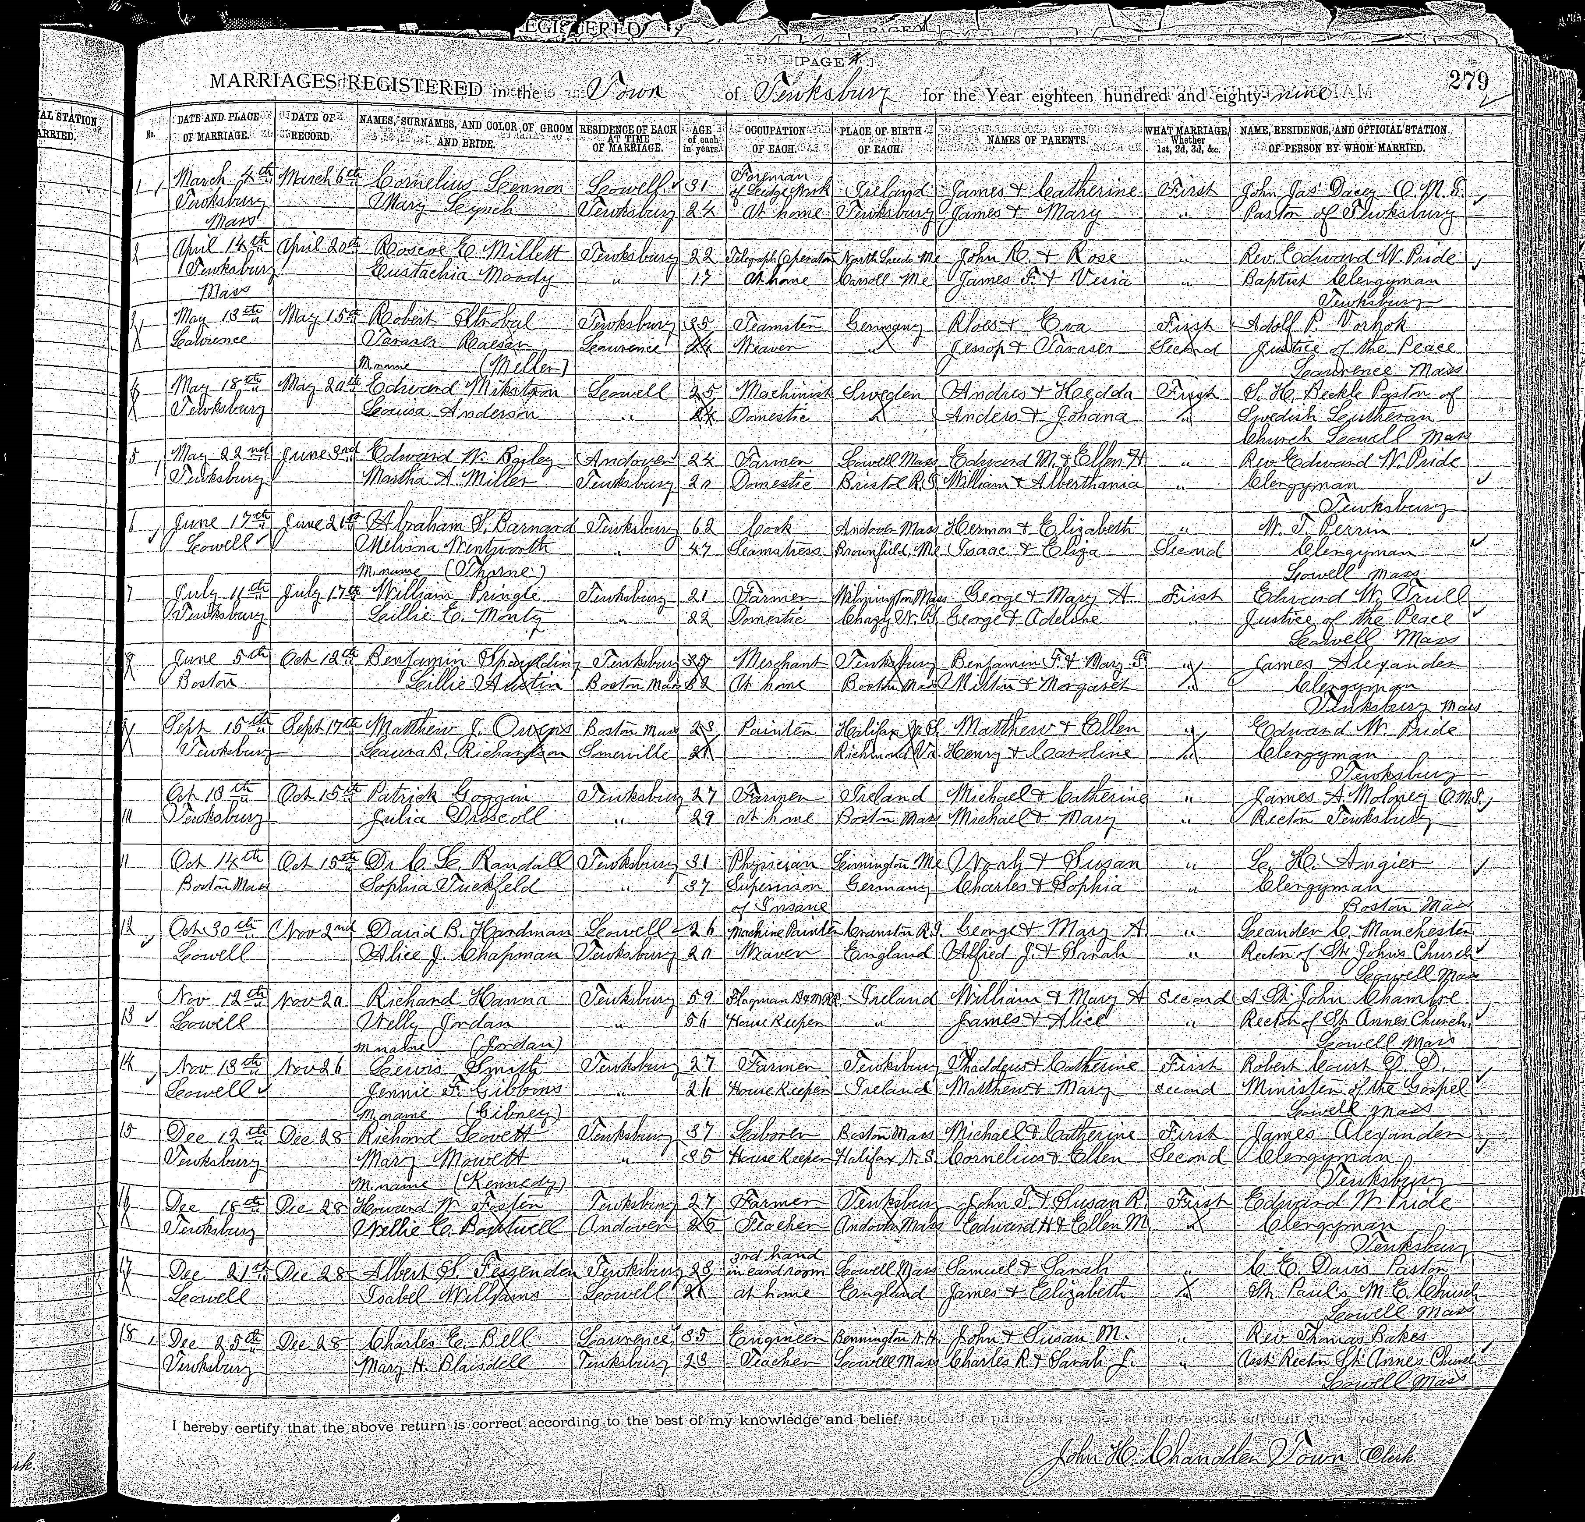 [PAGE ]
279
MARRIAGES REGISTERED in the Town of Tewksbury for the Year eighteen hundred and eighty-nine
No. DATE AND PLACE OF MARRIAGE. DATE OF RECORD. NAMES, SURNAMES, AND COLOR OF GROOM AND BRIDE. RESIDENCE OF EACH AT TIME OF MARRIAGE. AGE of each in years. OCCUPATION OF EACH. PLACE OF BIRTH OF EACH. NAMES OF PARENTS. WHAT MARRIAGE, Whether 1st, 2d, 3d, &c. NAME, RESIDENCE, AND OFFICIAL STATION OF PERSON BY WHOM MARRIED.
1 March 4th March 6th Cornelius Lennon Lowell 31 Foreman of Ledge Work Ireland James & Catherine First John Jas Dacey O.M.I.
Tewksbury Mary Lynch Tewksbury 24 At home Tewksbury James & Mary " Pastor of Tewksbury
Mass
2 April 14th April 20th Roscoe E. Millett Tewksbury 22 Telegraph Operator North Leeds Me John R. & Rose " Rev. Edward W. Pride
Tewksbury Eustachia Moody " 17 At home Carroll Me James F. & " Baptist Clergyman
Mass Tewksbury
3 May 13th May 15th Robert Strobel Tewksbury 35 Teamster Germany & Eva First Adolf P.
Lawrence Caesar Lawrence 24 Weaver " Second Justice of the Peace
M. name (Meller) Lawrence Mass
4 May 18th May 20th Edward Lowell 25 Machinist Sweden Andres & Hedda First S. H. Pastor of
Tewksbury Louisa Anderson " 24 Domestic " Anders & Johana " Swedish Lutheran
Church Lowell Mass
5 May 22nd June 3rd Edward W. Bailey Andover 24 Farmer Lowell Mass Edward M. & Ellen H " Rev Edward W. Pride
Tewksbury Martha A. Miller Tewksbury 20 Domestic Bristol R.I. William & Alberthania " Clergyman
Tewksbury
6 June 17th June 21st Abraham S. Barnard Tewksbury 62 Cook Andover Mass Herman & Elizabeth " W. T. Perrin
Lowell Melvina Wentworth " 47 Seamstress Brownfield, Me Isaac & Eliza Second Clergyman
M. name (Thorne) Lowell Mass
7 July 11th July 17th William Pringle Tewksbury 21 Farmer Wilmington Mass George & Mary A First Edward W. Trull
Tewksbury Lillie E. Monty " 22 Domestic Chazy N.Y. George & Adeline " Justice of the Peace
Lowell Mass
8 June 5th Oct 12th Benjamin Spaulding Tewksbury 37 Merchant Tewksbury Benjamin F. & Mary F. " James Alexander
Boston Lillie Austin Boston Mass 32 At home Boston Mass Milton & Margaret " Clergyman
Tewksbury Mass
9 Sept 15th Sept 17th Matthew J. Owens Boston Mass 23 Painter Halifax N.S. Matthew & Ellen " Edward W. Pride
Tewksbury Laura B. Richardson Somerville 21 Richmond Va Henry & Caroline " Clergyman
Tewksbury
10 Oct 13th Oct 15th Patrick Goggin Tewksbury 27 Farmer Ireland Michael & Catherine " James A. Moloney O.M.I.
Tewksbury Julia Driscoll " 29 At home Boston Mass Michael & Mary " Rector Tewksbury
11 Oct 14th Oct 15th Dr. C. L. Randall Tewksbury 31 Physician Limington Me Noah & Susan " L. H. Angier
Boston Mass Sophia Tuckfeld " 37 Supervisor Germany Charles & Sophia " Clergyman
of Insane Boston Mass
12 Oct 30th Nov 2nd David B. Hardman Lowell 26 Machine Printer Cranston R.I. George & Mary A " Leander C. Manchester
Lowell Alice J. Chapman Tewksbury 20 Weaver England Alfred J. & Sarah " Rector of St. John's Church
Lowell Mass
13 Nov. 12th Nov 20 Richard Hanna Tewksbury 59 Flagman B&M RR Ireland William & Mary A Second A St. John Chambre
Lowell Jordan " 56 House Keeper " James & Alice " Rector of St. Annes Church
M name (Jordan) Lowell Mass
14 Nov. 13th Nov 26 Lewis Smith Tewksbury 27 Farmer Tewksbury Thaddeus & Catherine First Robert Court D. D.
Lowell Jennie F. Gibbons " 26 House Keeper Ireland Matthew & Mary Second Minister of the Gospel
M name (Gibney) Lowell Mass
15 Dec 12th Dec 28 Richard Lovett Tewksbury 37 Laborer Boston Mass Michael & Catherine First James Alexander
Tewksbury Mary Mowett " 35 House Keeper Halifax N.S. Cornelius & Ellen Second Clergyman
M. name (Kennedy) Tewksbury
16 Dec 18th Dec 28 Howard W. Foster Tewksbury 27 Farmer Tewksbury John T. & Susan R. First Edward W. Pride
Tewksbury Nellie E. Boutwell Andover 25 Teacher Andover Mass Edward H & Ellen M. " Clergyman
Tewksbury
17 Dec 21st Dec 28 Albert S. Fessenden Tewksbury 23 2nd hand in card room Lowell Mass Samuel & Sarah " C. E. Davis Pastor
Lowell Isabel Williams Lowell 21 at home England James & Elizabeth " St. Paul's M. E. Church
Lowell Mass
18 Dec 25th Dec 28 Charles E. Bell Lawrence 35 Engineer Bennington N.H. John & Susan M. " Rev Thomas Bakes
Tewksbury Mary H. Blaisdell Tewksbury 23 Teacher Lowell Mass Charles R & Sarah J. " Asst Rector St. Annes Church
Lowell Mass
I hereby certify that the above return is correct according to the best of my knowledge and belief.
John H. Chandler Town Clerk